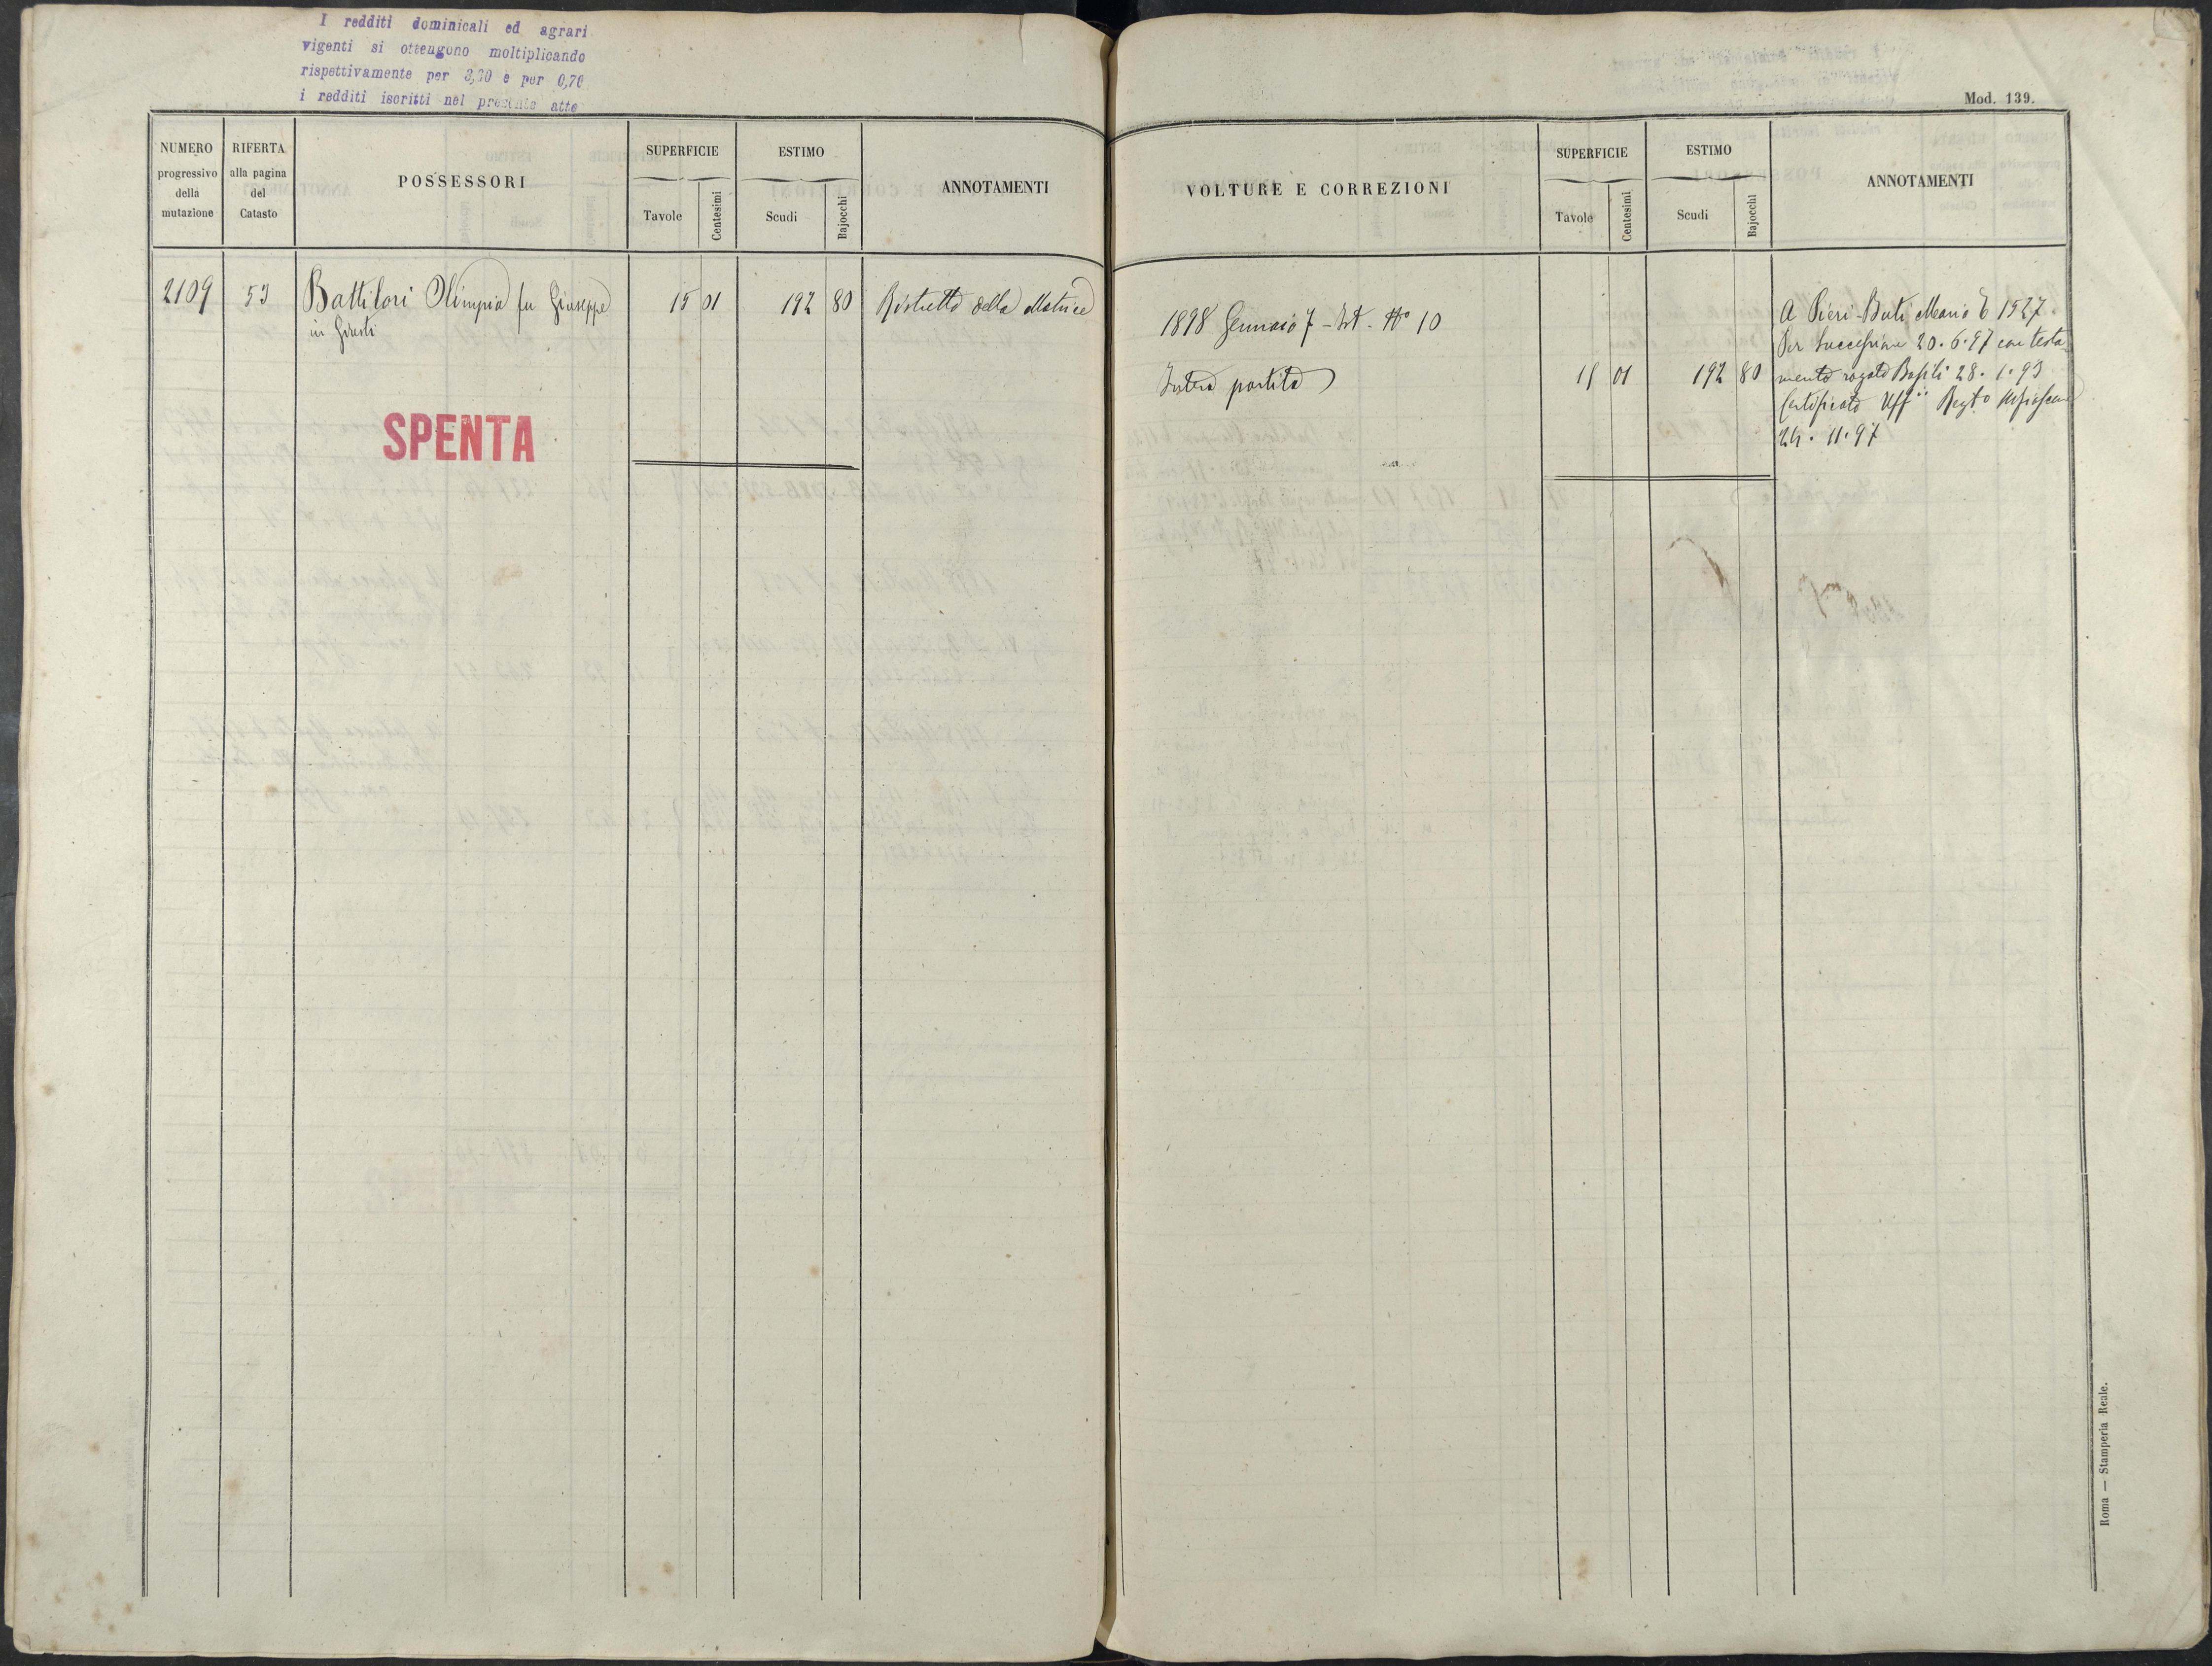 I redditi dominicali ed agrari
vigenti si ottengono moltiplicando
rispettivamente per 3,30 e per 0,70
i redditi iscritti nel presente atto
Mod. 139.
NUMERO progressivo della mutazione
RIFERTA alla pagina del Catasto
POSSESSORI
SUPERFICIE
Tavole
Centesimi
ESTIMO
Scudi
Bajocchi
ANNOTAMENTI
VOLTURE E CORREZIONI
SUPERFICIE
Tavole
Centesimi
ESTIMO
Scudi
Bajocchi
ANNOTAMENTI
2109 53 Battilori Olimpia fu Giuseppe 15 01 192 80 Ristretto della Matrice
in Giusti
SPENTA
1898 Gennaio 7 - N° 10
Intera partita 15 01 192 80
A Pieri-Buti Maria 1527
Per Successione 20.6.97 con testa
mento rogato Basili 28.1.93
Certificato Uff° Regto
24.11.97
Roma — Stamperia Reale.